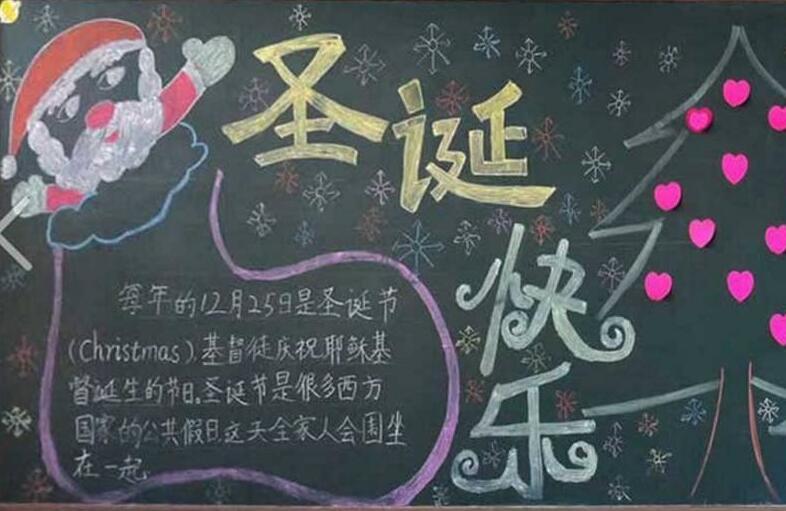 圣诞
快
乐
每年的12月25日是圣诞节
(Christmas),基督徒庆祝耶稣基
督诞生的节日。圣诞节是很多西方
国家的公共假日,这天全家人会围坐
在一起。